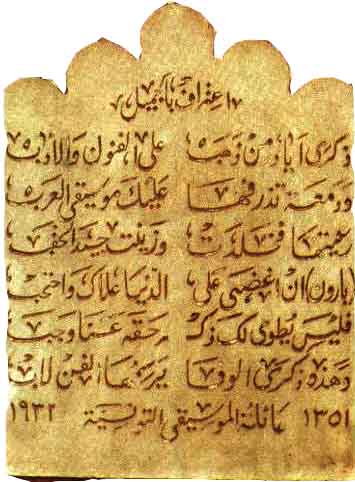 اعتراف بالجميل
ذكرى أياد من ذهب على الفنون والأدب
ودمعة تذرفها عليك موسيقى العرب
رعيتها وزينت جيد الحقب
(بارون) ان اغضى على الدنيا علاك واحتجب
فليس يطوى لك ذكـ ـر حقه وجب
وهذه ذكرى الوفا يرفعها الفن لأب
١٣٥١ عائلة الموسيقى التونسية ١٩٣٢